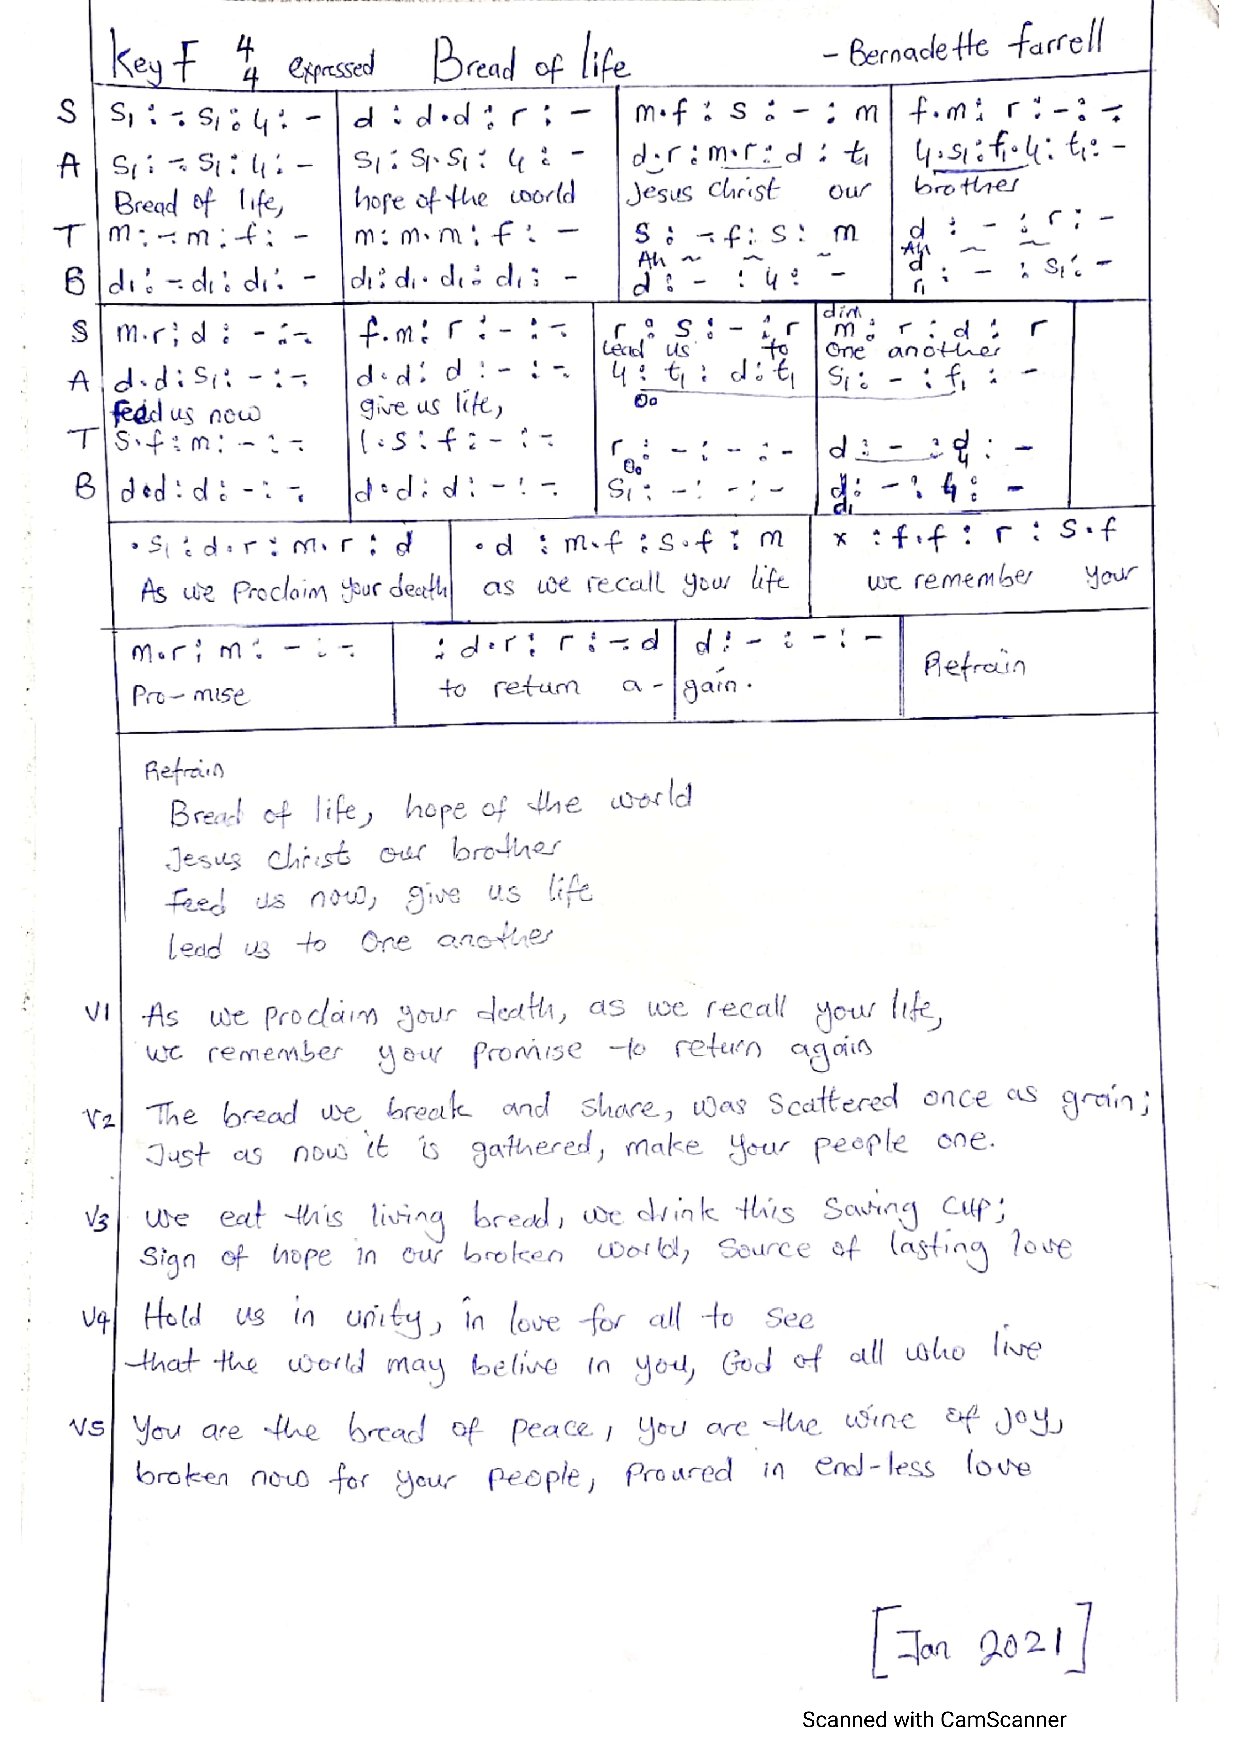 Key F 4/4 expressed Bread of life - Bernadette farrell
S s₁ : -. s₁ : l₁ : - | d : d.d : r : - | m.f : s : - : m | f.m : r : - : -
A s₁ : -. s₁ : l₁ : - | s₁ : s₁.s₁ : l₁ : - | d.r : m.r : d : t₁ | l₁.s₁ : f₁.l₁ : t₁ : -
Bread of life, hope of the world Jesus Christ our brother
T m : -. m : f : - | m : m.m : f : - | s : -. f : s : m | d : - : r : -
Ah ~ ~ ~ Ah ~ ~
B d₁ : -. d₁ : d₁ : - | d₁ : d₁.d₁ : d₁ : - | d : - : l₁ : - | d r₁ : - : s₁ : -
dim
S m.r : d : - : -. | f.m : r : - : -. | r : s : - : r | m : r : d : r
Lead us to One another
A d.d : s₁ : - : -. | d.d : d : - : -. | l₁ : t₁ : d : t₁ | s₁ : - : f₁ : -
Feed us now give us life, Oo
T s.f : m : - : -. | l.s : f : - : -. | r : - : - : - | d : - : d l₁ : -
Oo
B d.d : d : - : -. | d.d : d : - : -. | s₁ : - : - : - | d : - : l₁ : -
d₁
.s₁ : d.r : m.r : d | .d : m.f : s.f : m | x : f.f : r : s.f
As we Proclaim your death as we recall your life we remember your
m.r : m : - : -. | : d.r : r : -. d | d : - : - : - | Refrain
Pro-mise to return a-gain.
Refrain
Bread of life, hope of the world
Jesus Christ our brother
Feed us now, give us life
Lead us to One another
V1 As we proclaim your death, as we recall your life,
we remember your promise to return again
V2 The bread we break and share, was scattered once as grain;
Just as now it is gathered, make your people one.
V3 We eat this living bread, we drink this Saving Cup;
Sign of hope in our broken world, source of lasting love
V4 Hold us in unity, in love for all to see
that the world may belive in you, God of all who live
V5 You are the bread of peace, you are the wine of joy,
broken now for your people, Proured in end-less love
[Jan 2021]
Scanned with CamScanner